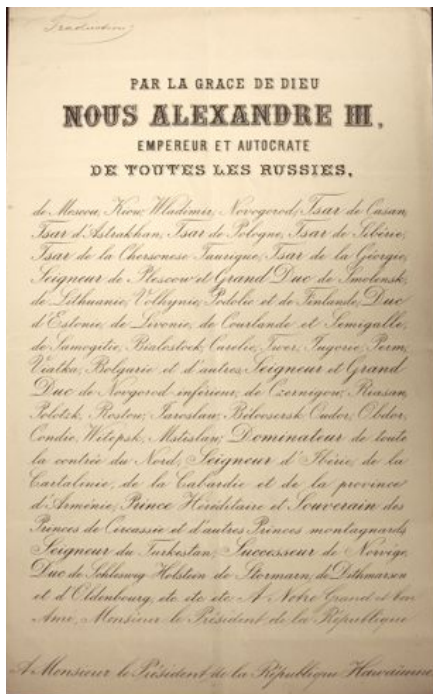 Traduction
PAR LA GRACE DE DIEU
NOUS ALEXANDRE III,
EMPEREUR ET AUTOCRATE
DE TOUTES LES RUSSIES,
de Moscou, Kiow, Wladimir, Novogorod, Tsar de Casan,
Tsar d'Astrakhan, Tsar de Pologne, Tsar de Sibérie,
Tsar de la Chersonese Taurique, Tsar de la Géorgie,
Seigneur de Plescow et Grand Duc de Smolensk,
de Lithuanie, Volhynie, Podolie et de Finlande, Duc
d'Estonie, de Livonie, de Courlande et Semigalle,
de Samogitie, Bialostock, Carélie, Twer, Jugorie, Perm,
Viatka, Bolgarie et d'autres, Seigneur et Grand
Duc de Novogorod inférieur, de Czernigow, Riasan,
Polotzk, Rostow, Jaroslaw, Béloosersk, Oudor, Obdor,
Condie, Witepsk, Mstislaw, Dominateur de toute
la contrée du Nord, Seigneur d'Ibérie, de la
Cartalinie, de la Cabardie et de la province
d'Arménie, Prince Héréditaire et Souverain des
Princes de Circassie et d'autres Princes montagnards,
Seigneur du Turkestan, Successeur de Norvège,
Duc de Schleswig-Holstein, de Stormarn, de Dithmarsen
et d'Oldenbourg, etc. etc. etc. A Notre Grand et bon
Ami, Monsieur le Président de la République
A Monsieur le Président de la République Hawaïenne